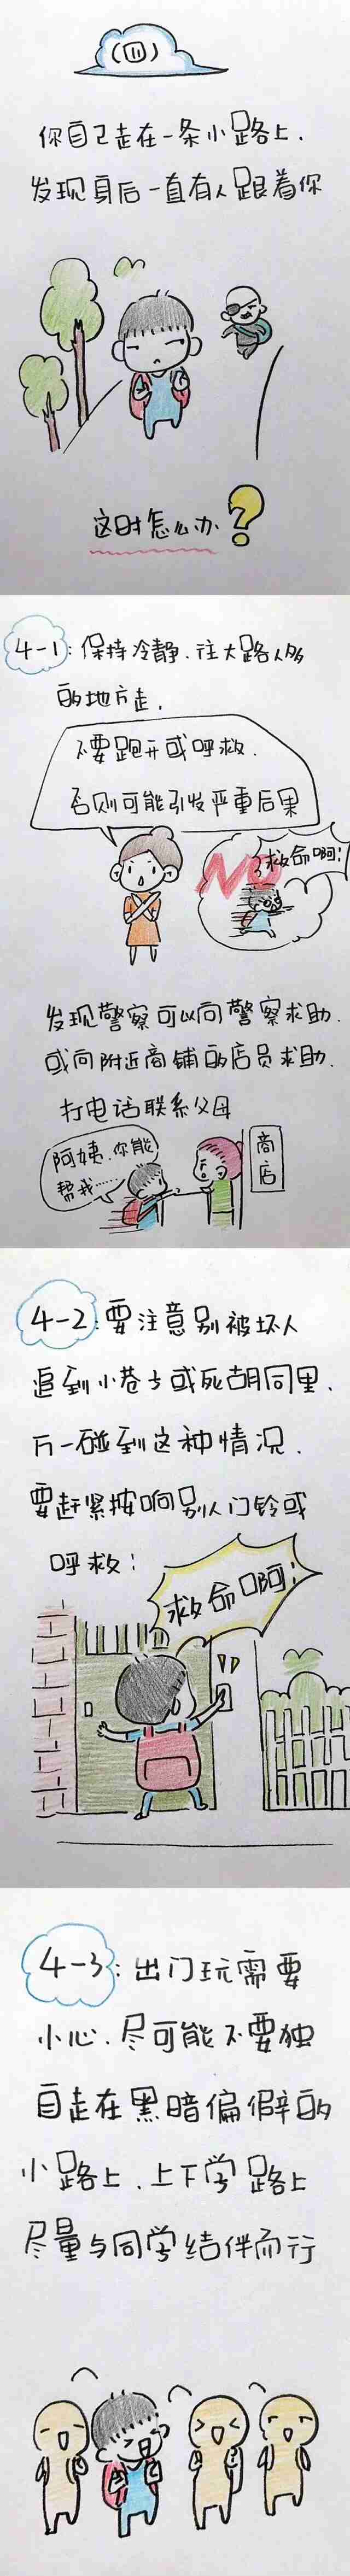 (四)
你自己走在一条小路上.
发现身后一直有人跟着你
这时怎么办?
4-1:保持冷静.往大路人多
的地方走.
不要跑开或呼救.
否则可能引发严重后果
NO
救命啊!
发现警察可以向警察求助.
或向附近商铺的店员求助.
打电话联系父母
阿姨.你能
帮我……
商店
4-2:要注意别被坏人
追到小巷子或死胡同里.
万一碰到这种情况.
要赶紧按响别人门铃或
呼救!
救命啊!
4-3:出门玩需要
小心.尽可能不要独
自走在黑暗偏僻的
小路上.上下学路上
尽量与同学结伴而行